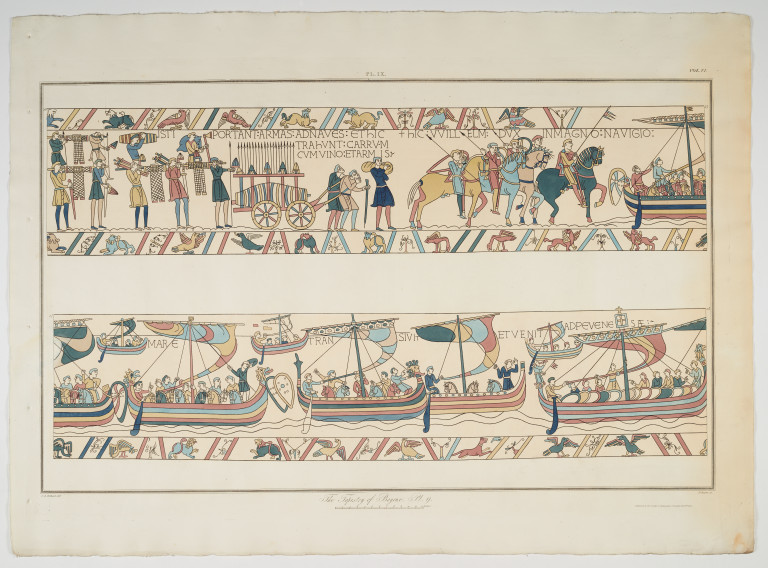 PL. IX.
VOL. VI
ISTI PORTANT: ARMAS: AD NAVES: ET HIC
TRAHUNT: CARRUM
CUM VINO: ET ARMIS:
+ HIC: WILLELM: DUX IN MAGNO: NAVIGIO:
MARE TRANSIVIT ET VENIT AD PEVENESÆ:
The Tapestry of Bayeux. Pl. 9.